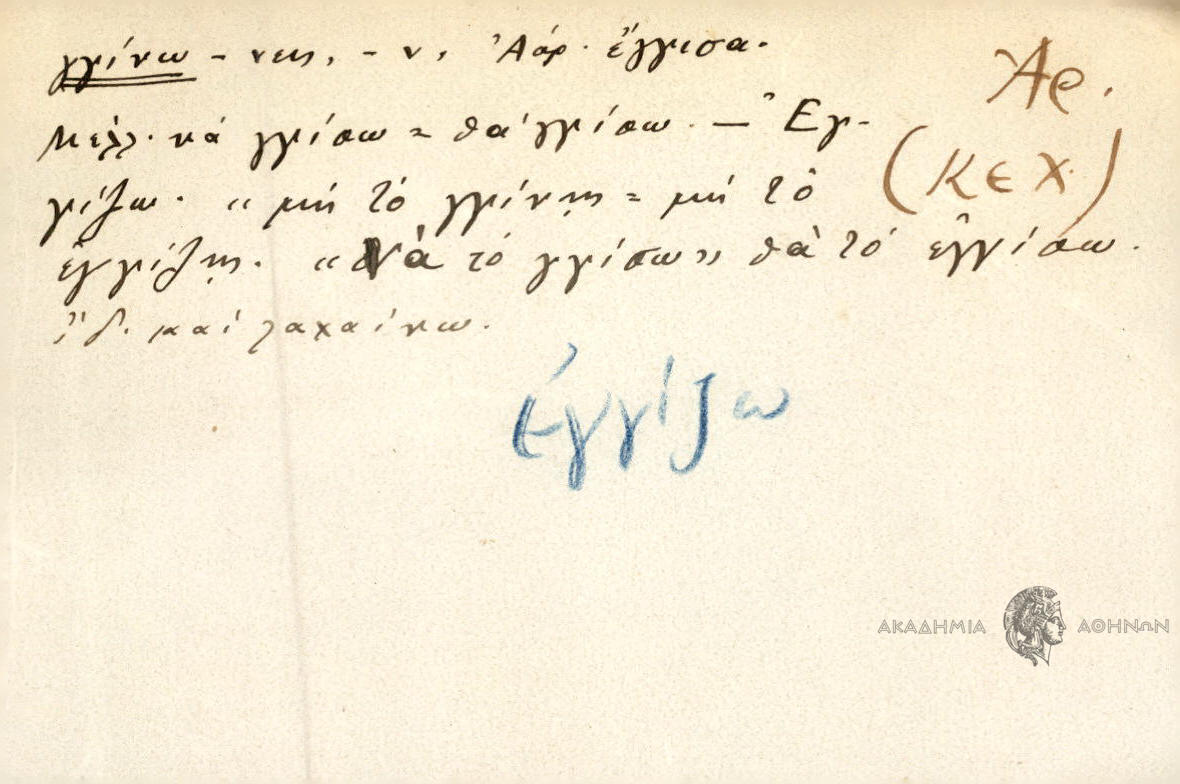 γγίνω - νεις, - ν, Ἀόρ. ἔγγισα.
Μελλ. νά γγίσω = θα 'γγίσω. — Ἐγ-
γίζω. « μή τό γγίνῃς = μή τό
ἐγγίζῃς. « Νὰ τό γγίσω » θὰ τό ἐγγίσω.
ἴδ. καί λαχαίνω.
Ἀρ.
(ΚΕΧ)
ἐγγίζω
ΑΚΑΔΗΜΙΑ ΑΘΗΝΩΝ